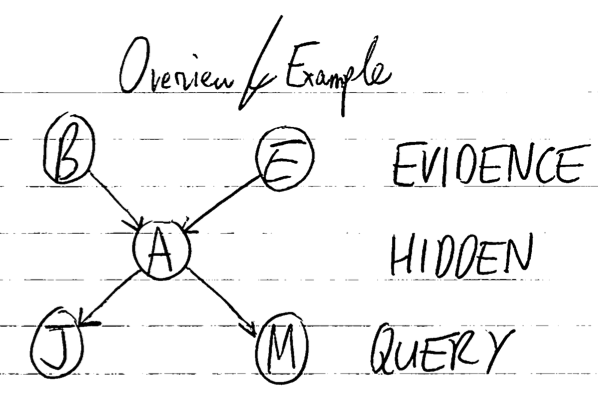 Overview / Example
B E EVIDENCE
A HIDDEN
J M QUERY